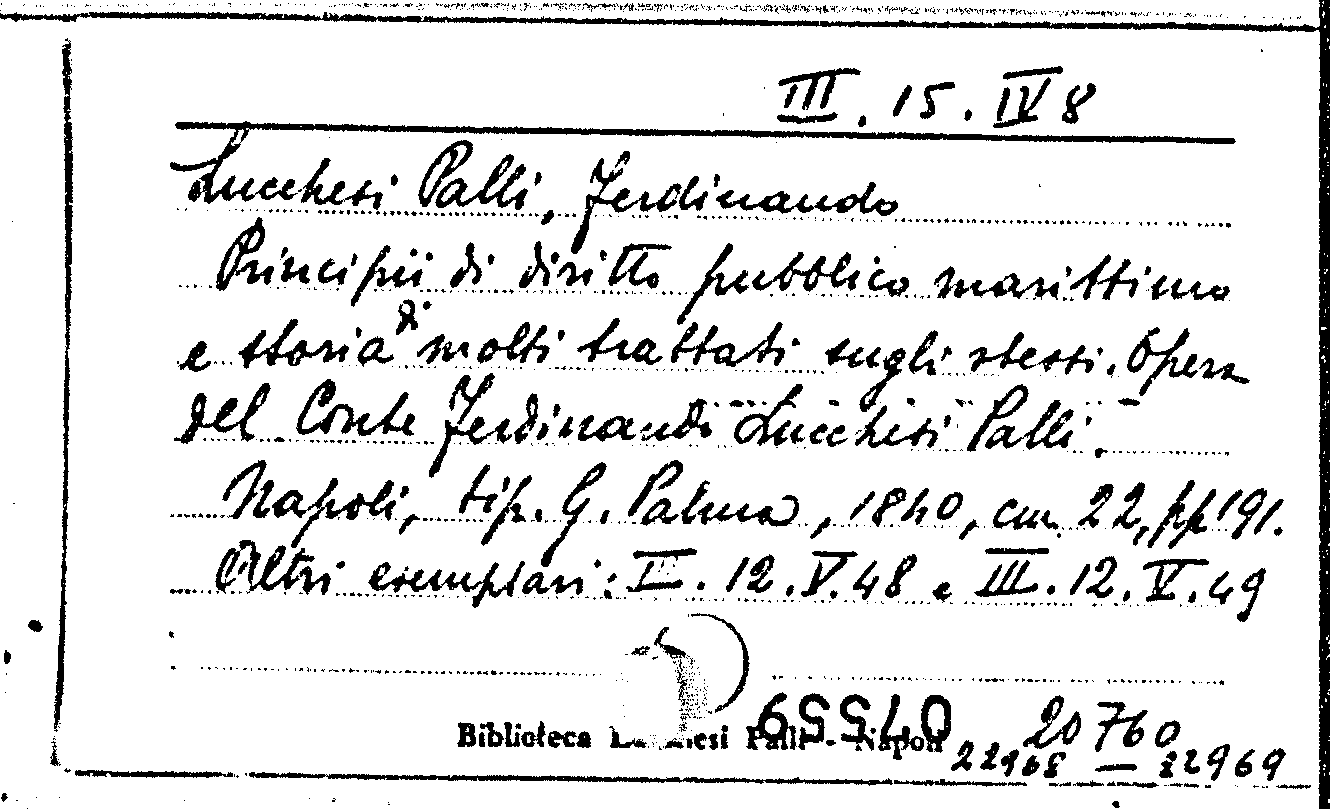 III. 15. IV 8
Lucchesi Palli, Ferdinando
Principii di diritto pubblico marittimo
e storia di molti trattati sugli stessi. Opera
del Conte Ferdinando Lucchesi Palli.
Napoli, tip. G. Palma, 1840, cm. 22, pp 191.
Altri esemplari: I. 12. V. 48 e III. 12. V. 49
07559
20760
Biblioteca Lucchesi Palli - Napoli
22968 — 22969